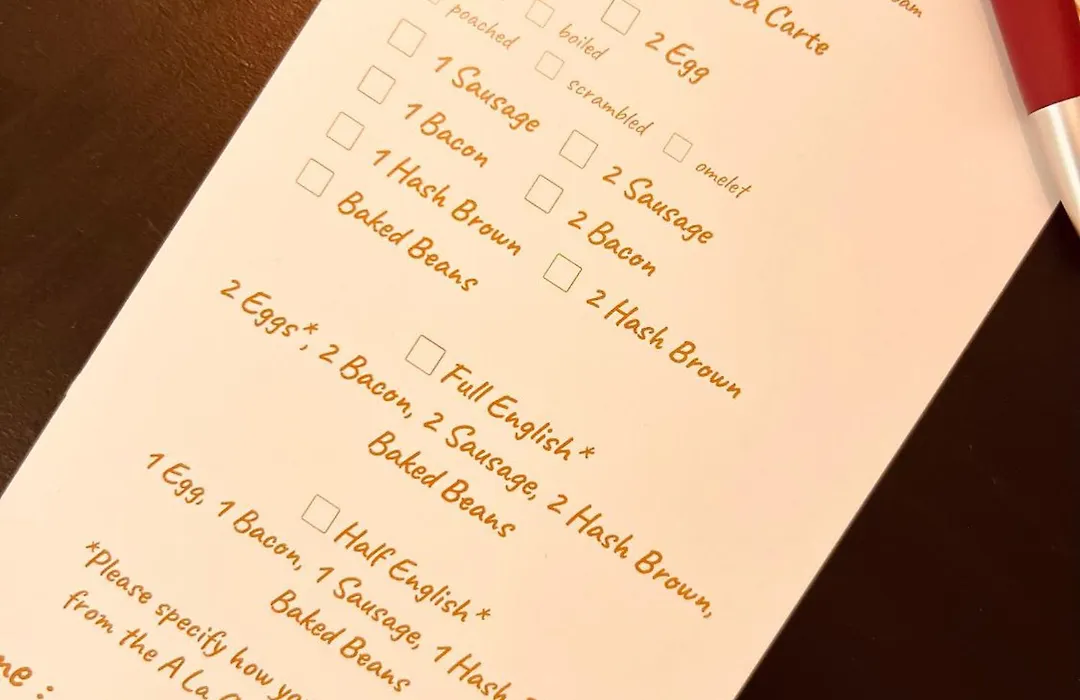 La Carte
2 Egg
poached boiled scrambled omelet
1 Sausage 2 Sausage
1 Bacon 2 Bacon
1 Hash Brown 2 Hash Brown
Baked Beans
Full English *
2 Eggs*, 2 Bacon, 2 Sausage, 2 Hash Brown,
Baked Beans
Half English *
1 Egg, 1 Bacon, 1 Sausage, 1 Hash
Baked Beans
*Please specify how
from the A La